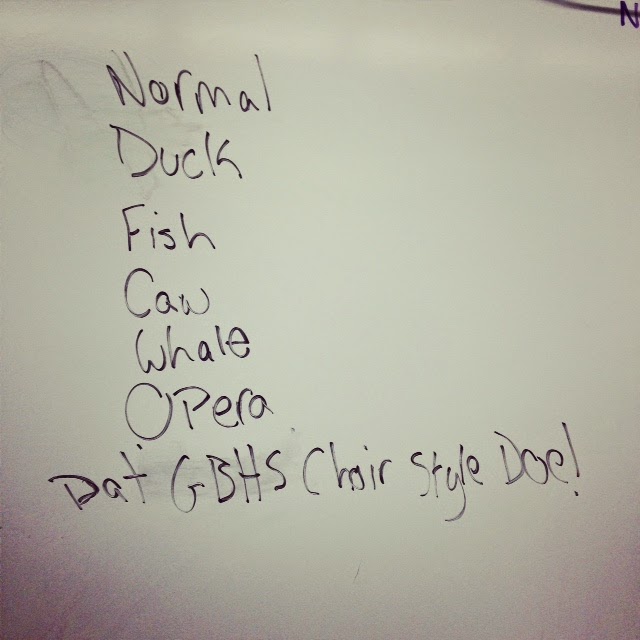 N
Normal
Duck
Fish
Caw
Whale
Opera
Dat GBHS Choir Style Doe!